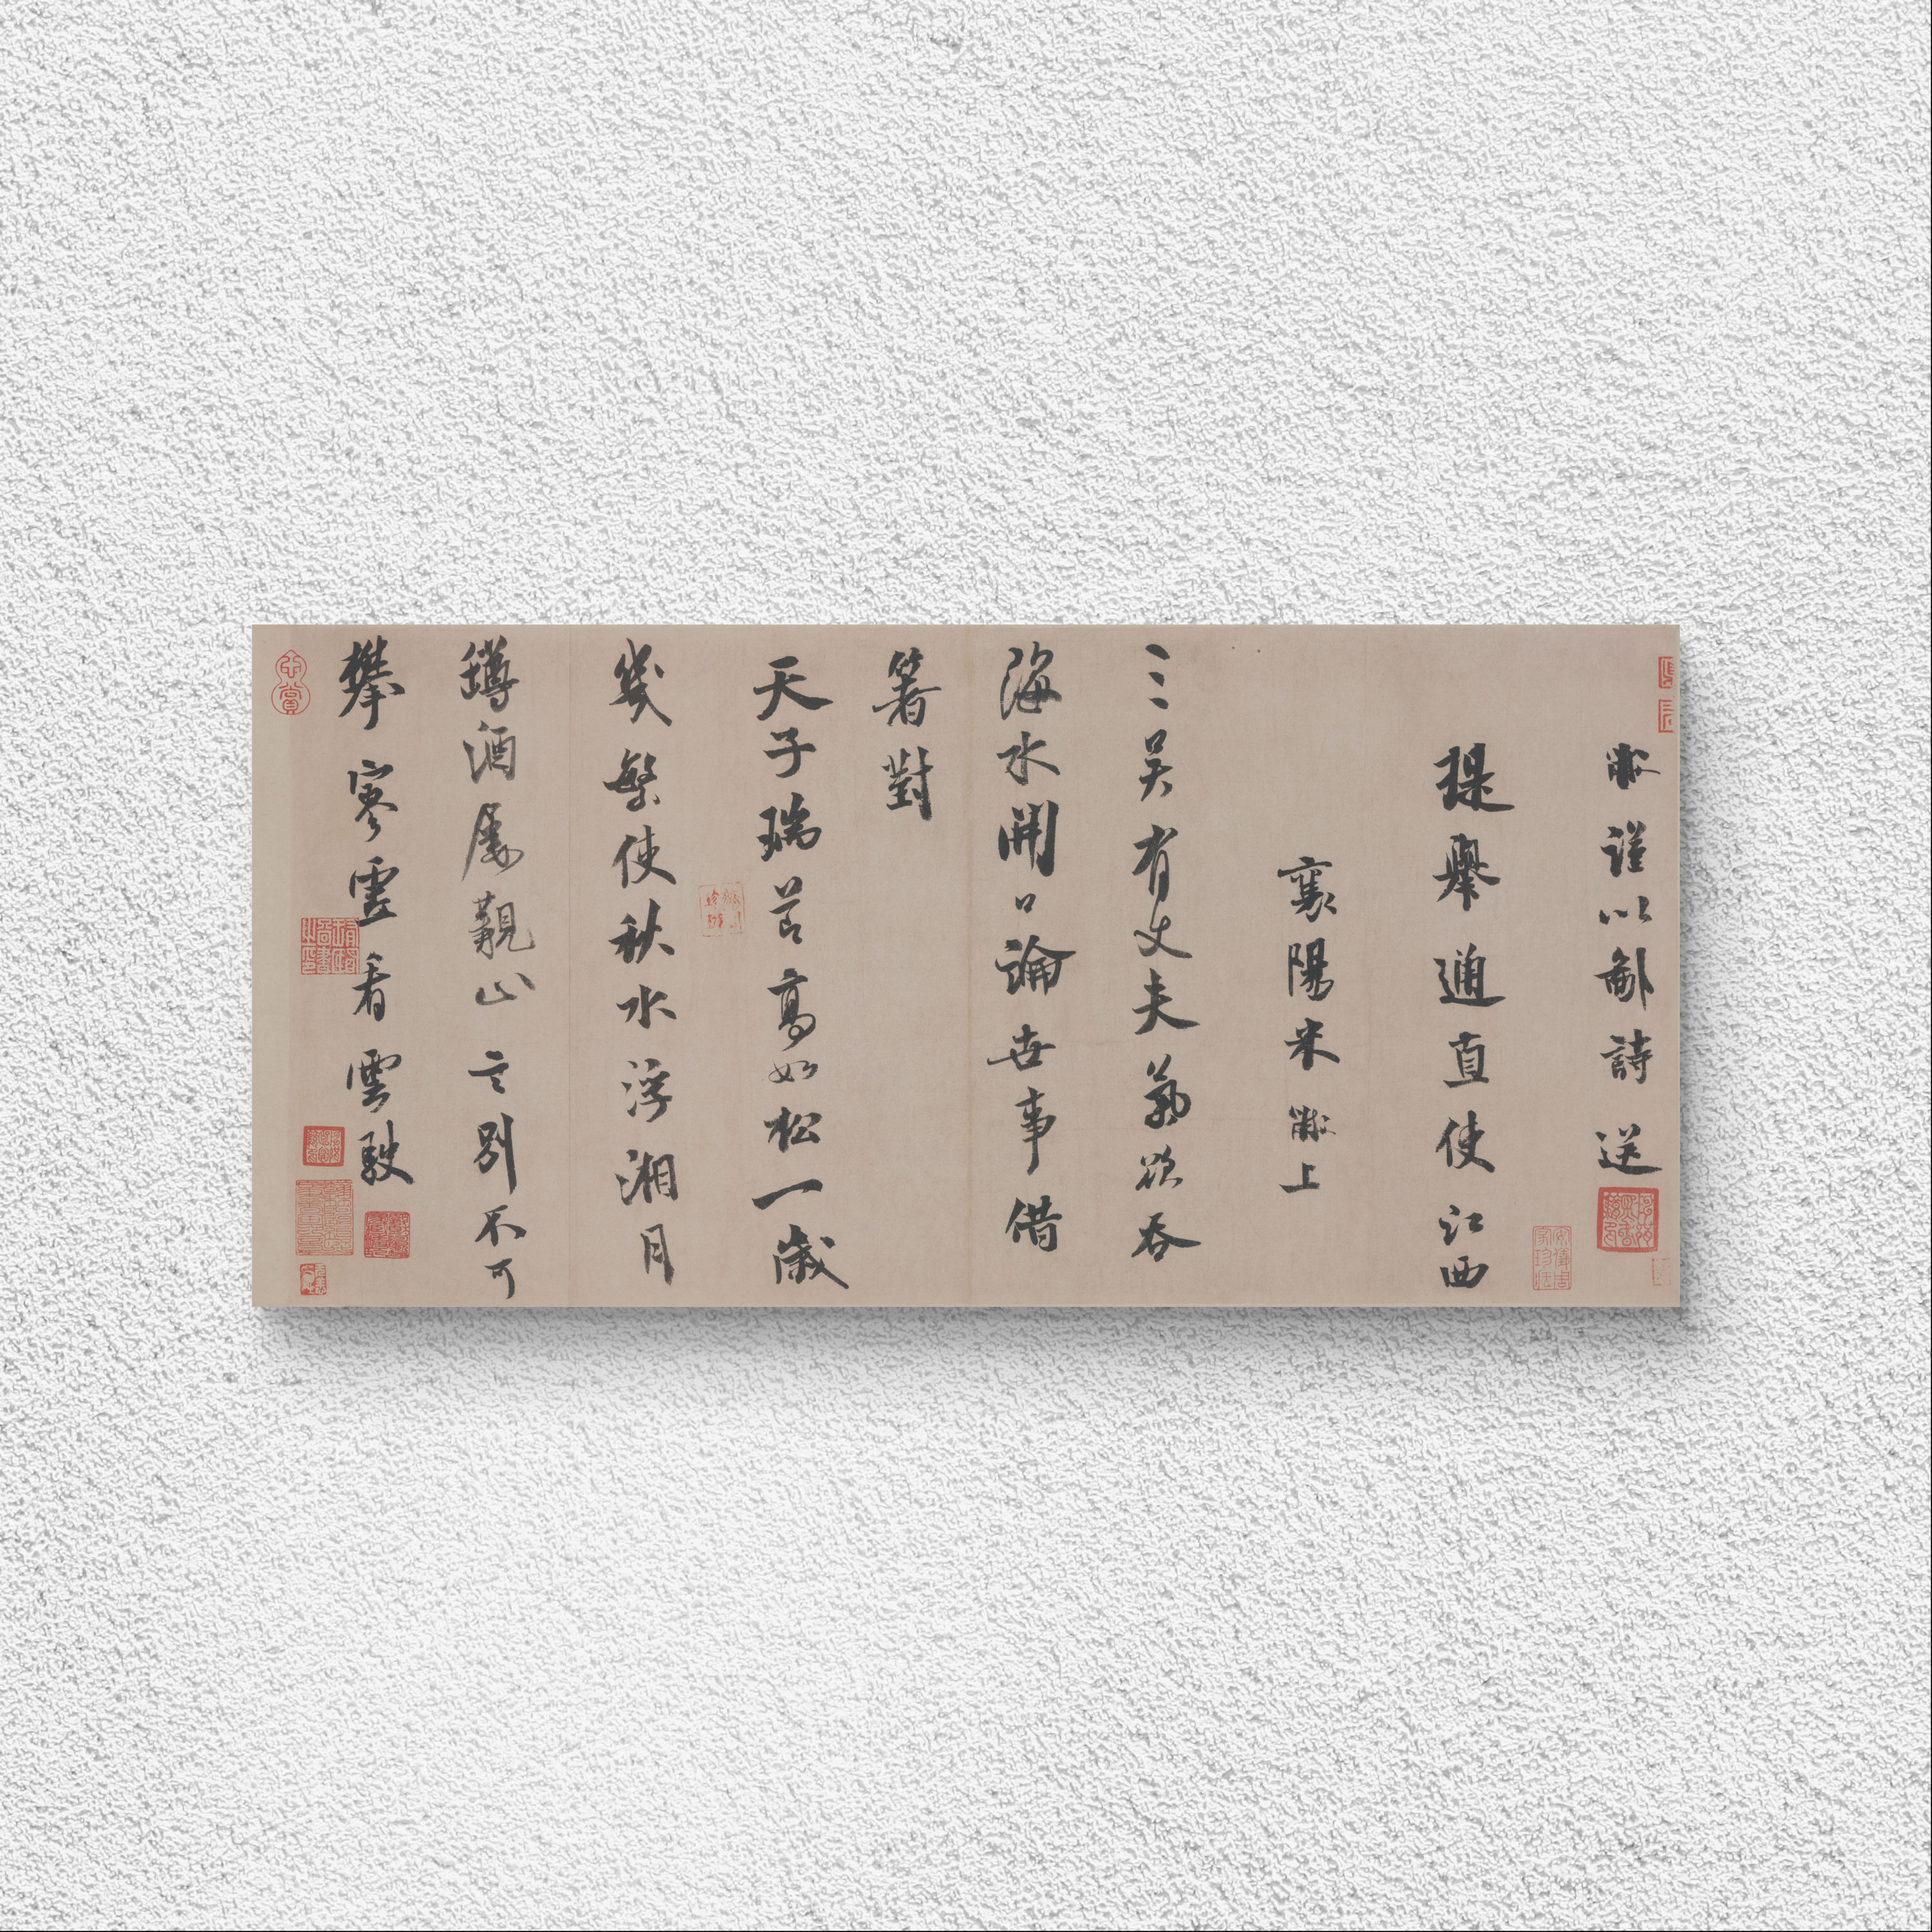 黻謹以鄙詩送
提舉通直使江西
襄陽米黻上
三吳有丈夫氣欲吞
海水開口論世事借
箸對
天子瑞節高如松一歲
幾繁使秋水浮湘月
罇酒屢覯止言別不可
攀寥看雲駛